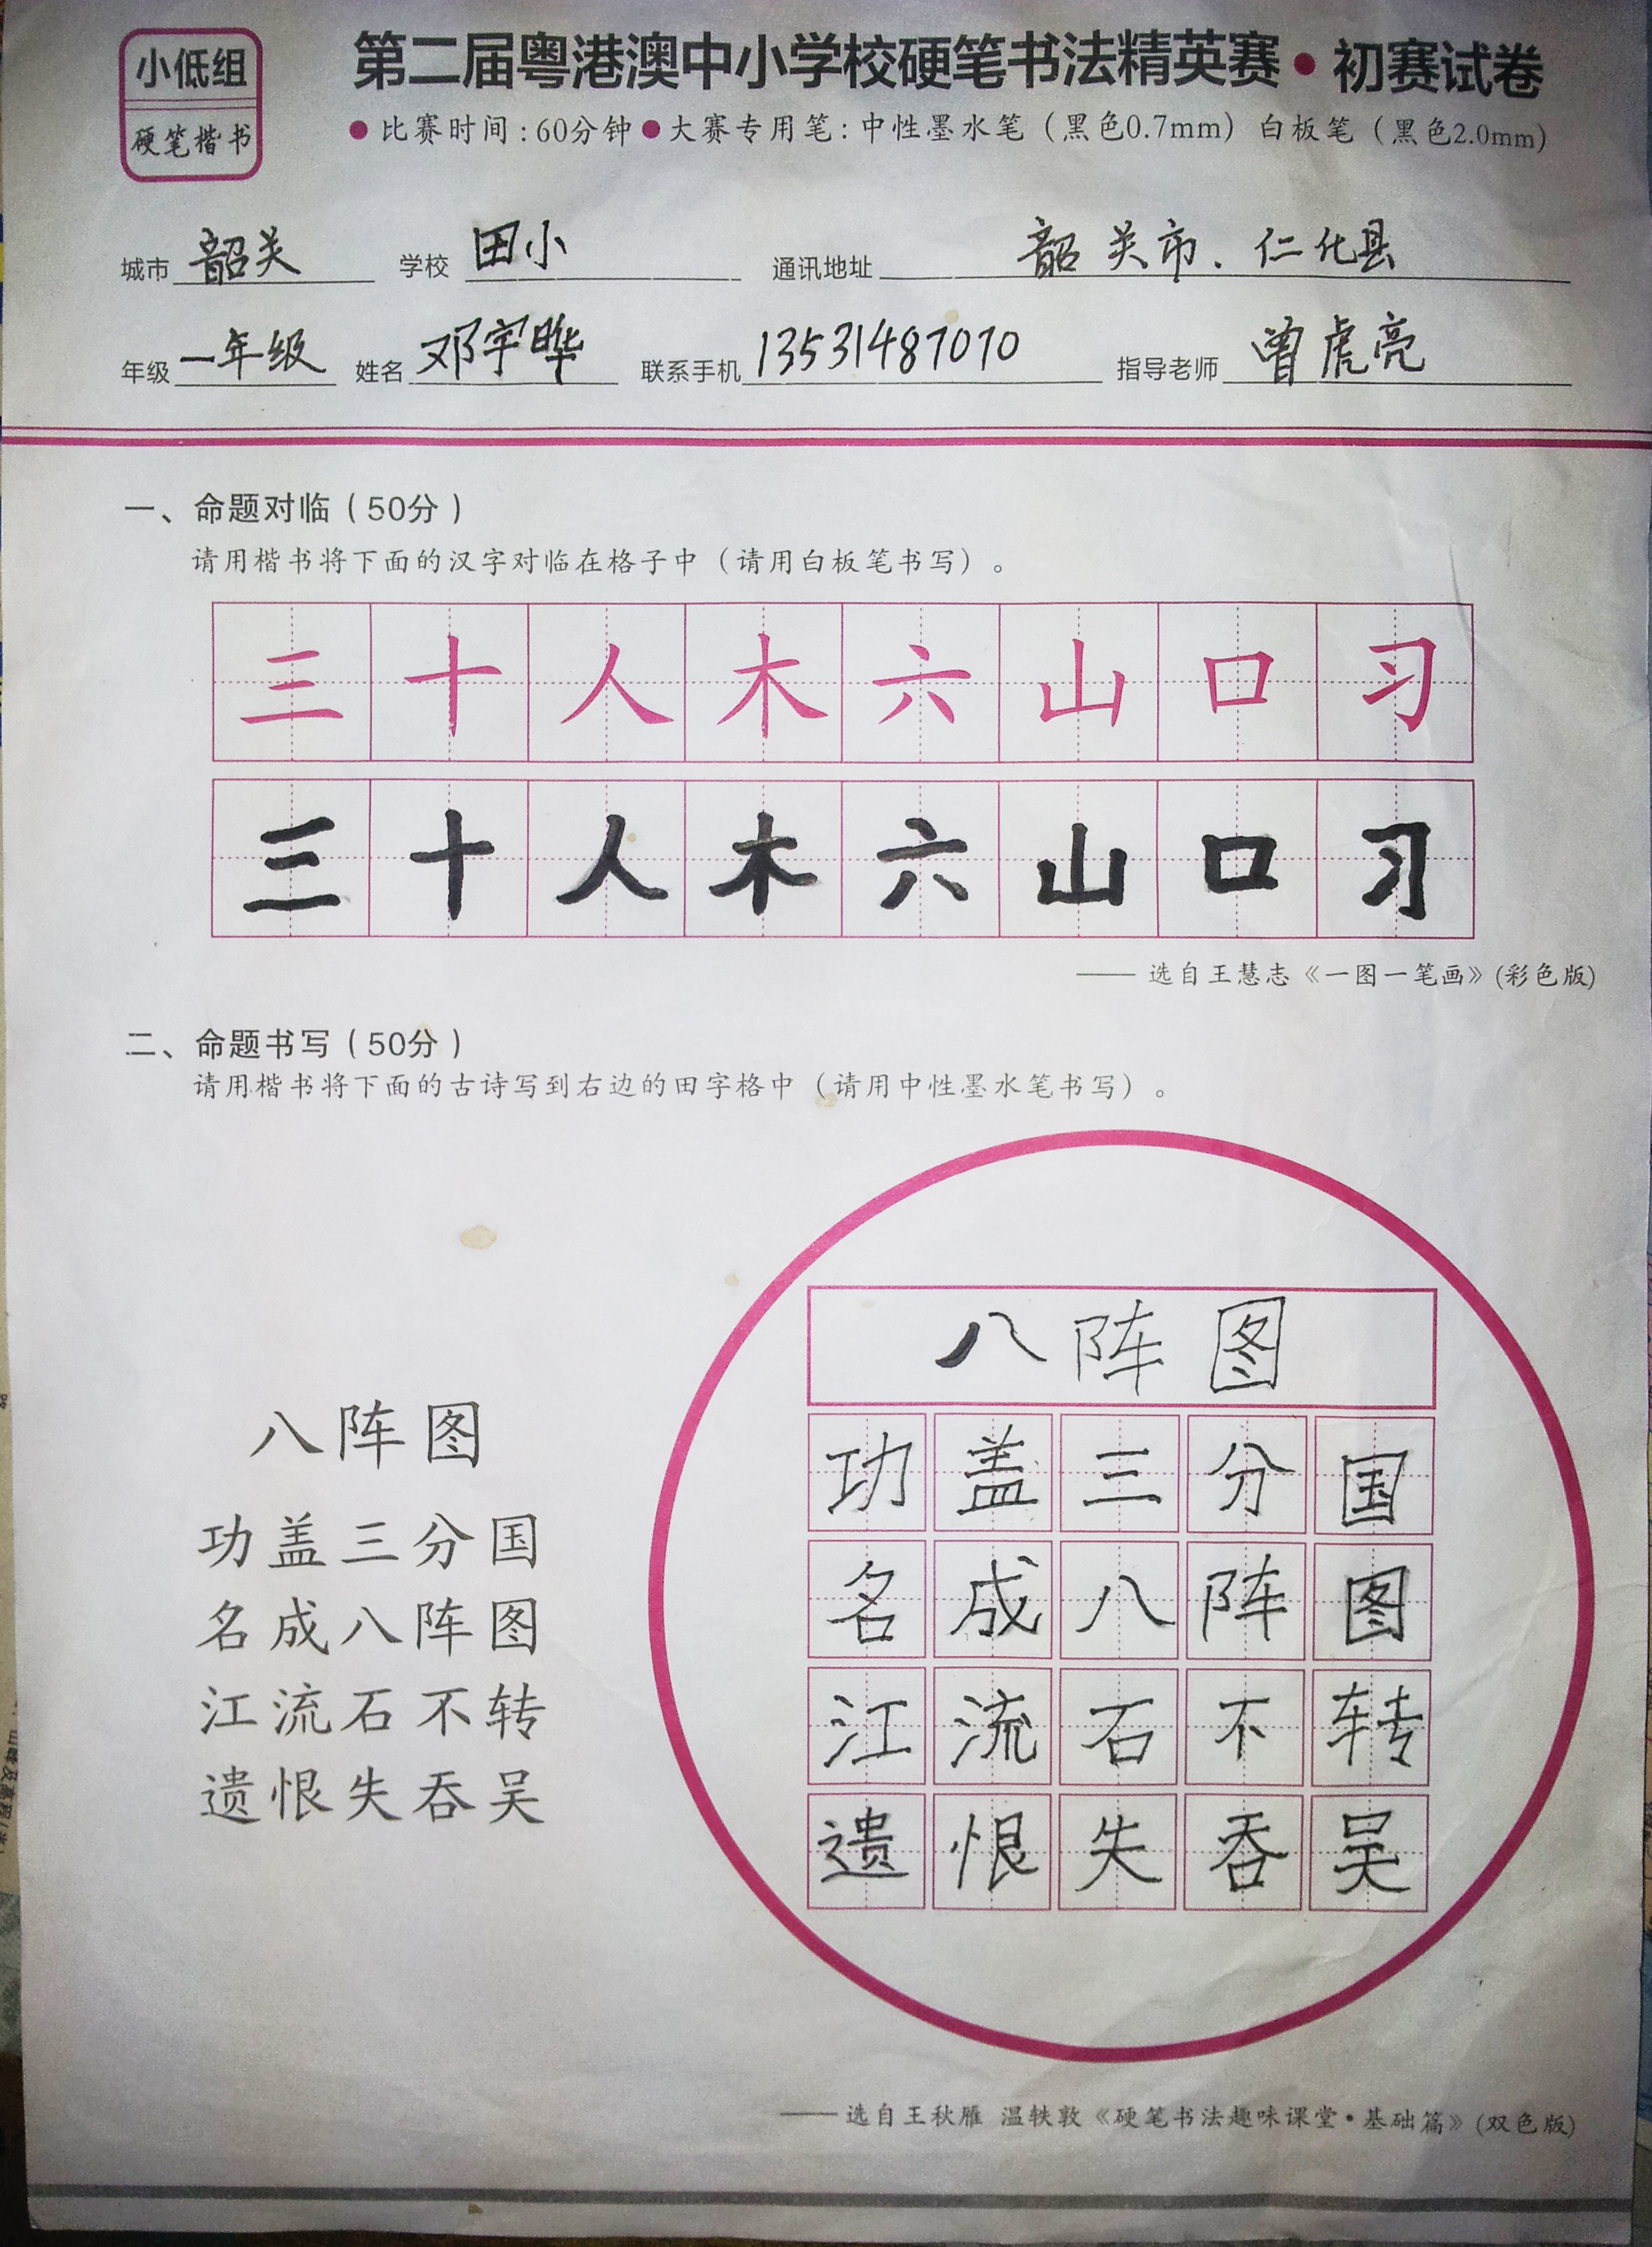 小低组
硬笔楷书
第二届粤港澳中小学校硬笔书法精英赛•初赛试卷
●比赛时间:60分钟●大赛专用笔:中性墨水笔（黑色0.7mm）白板笔（黑色2.0mm）
城市 韶关 学校 田小 通讯地址 韶关市.仁化县
年级 一年级 姓名 邓宇晔 联系手机 13531487070 指导老师 曾虎亮
一、命题对临（50分）
请用楷书将下面的汉字对临在格子中（请用白板笔书写）。
三十人木六山口习
三十人木六山口习
——选自王慧志《一图一笔画》(彩色版)
二、命题书写（50分）
请用楷书将下面的古诗写到右边的田字格中（请用中性墨水笔书写）。
八阵图
功盖三分国
名成八阵图
江流石不转
遗恨失吞吴
八阵图
功盖三分国
名成八阵图
江流石不转
遗恨失吞吴
——选自王秋雁 温轶敦《硬笔书法趣味课堂•基础篇》(双色版)